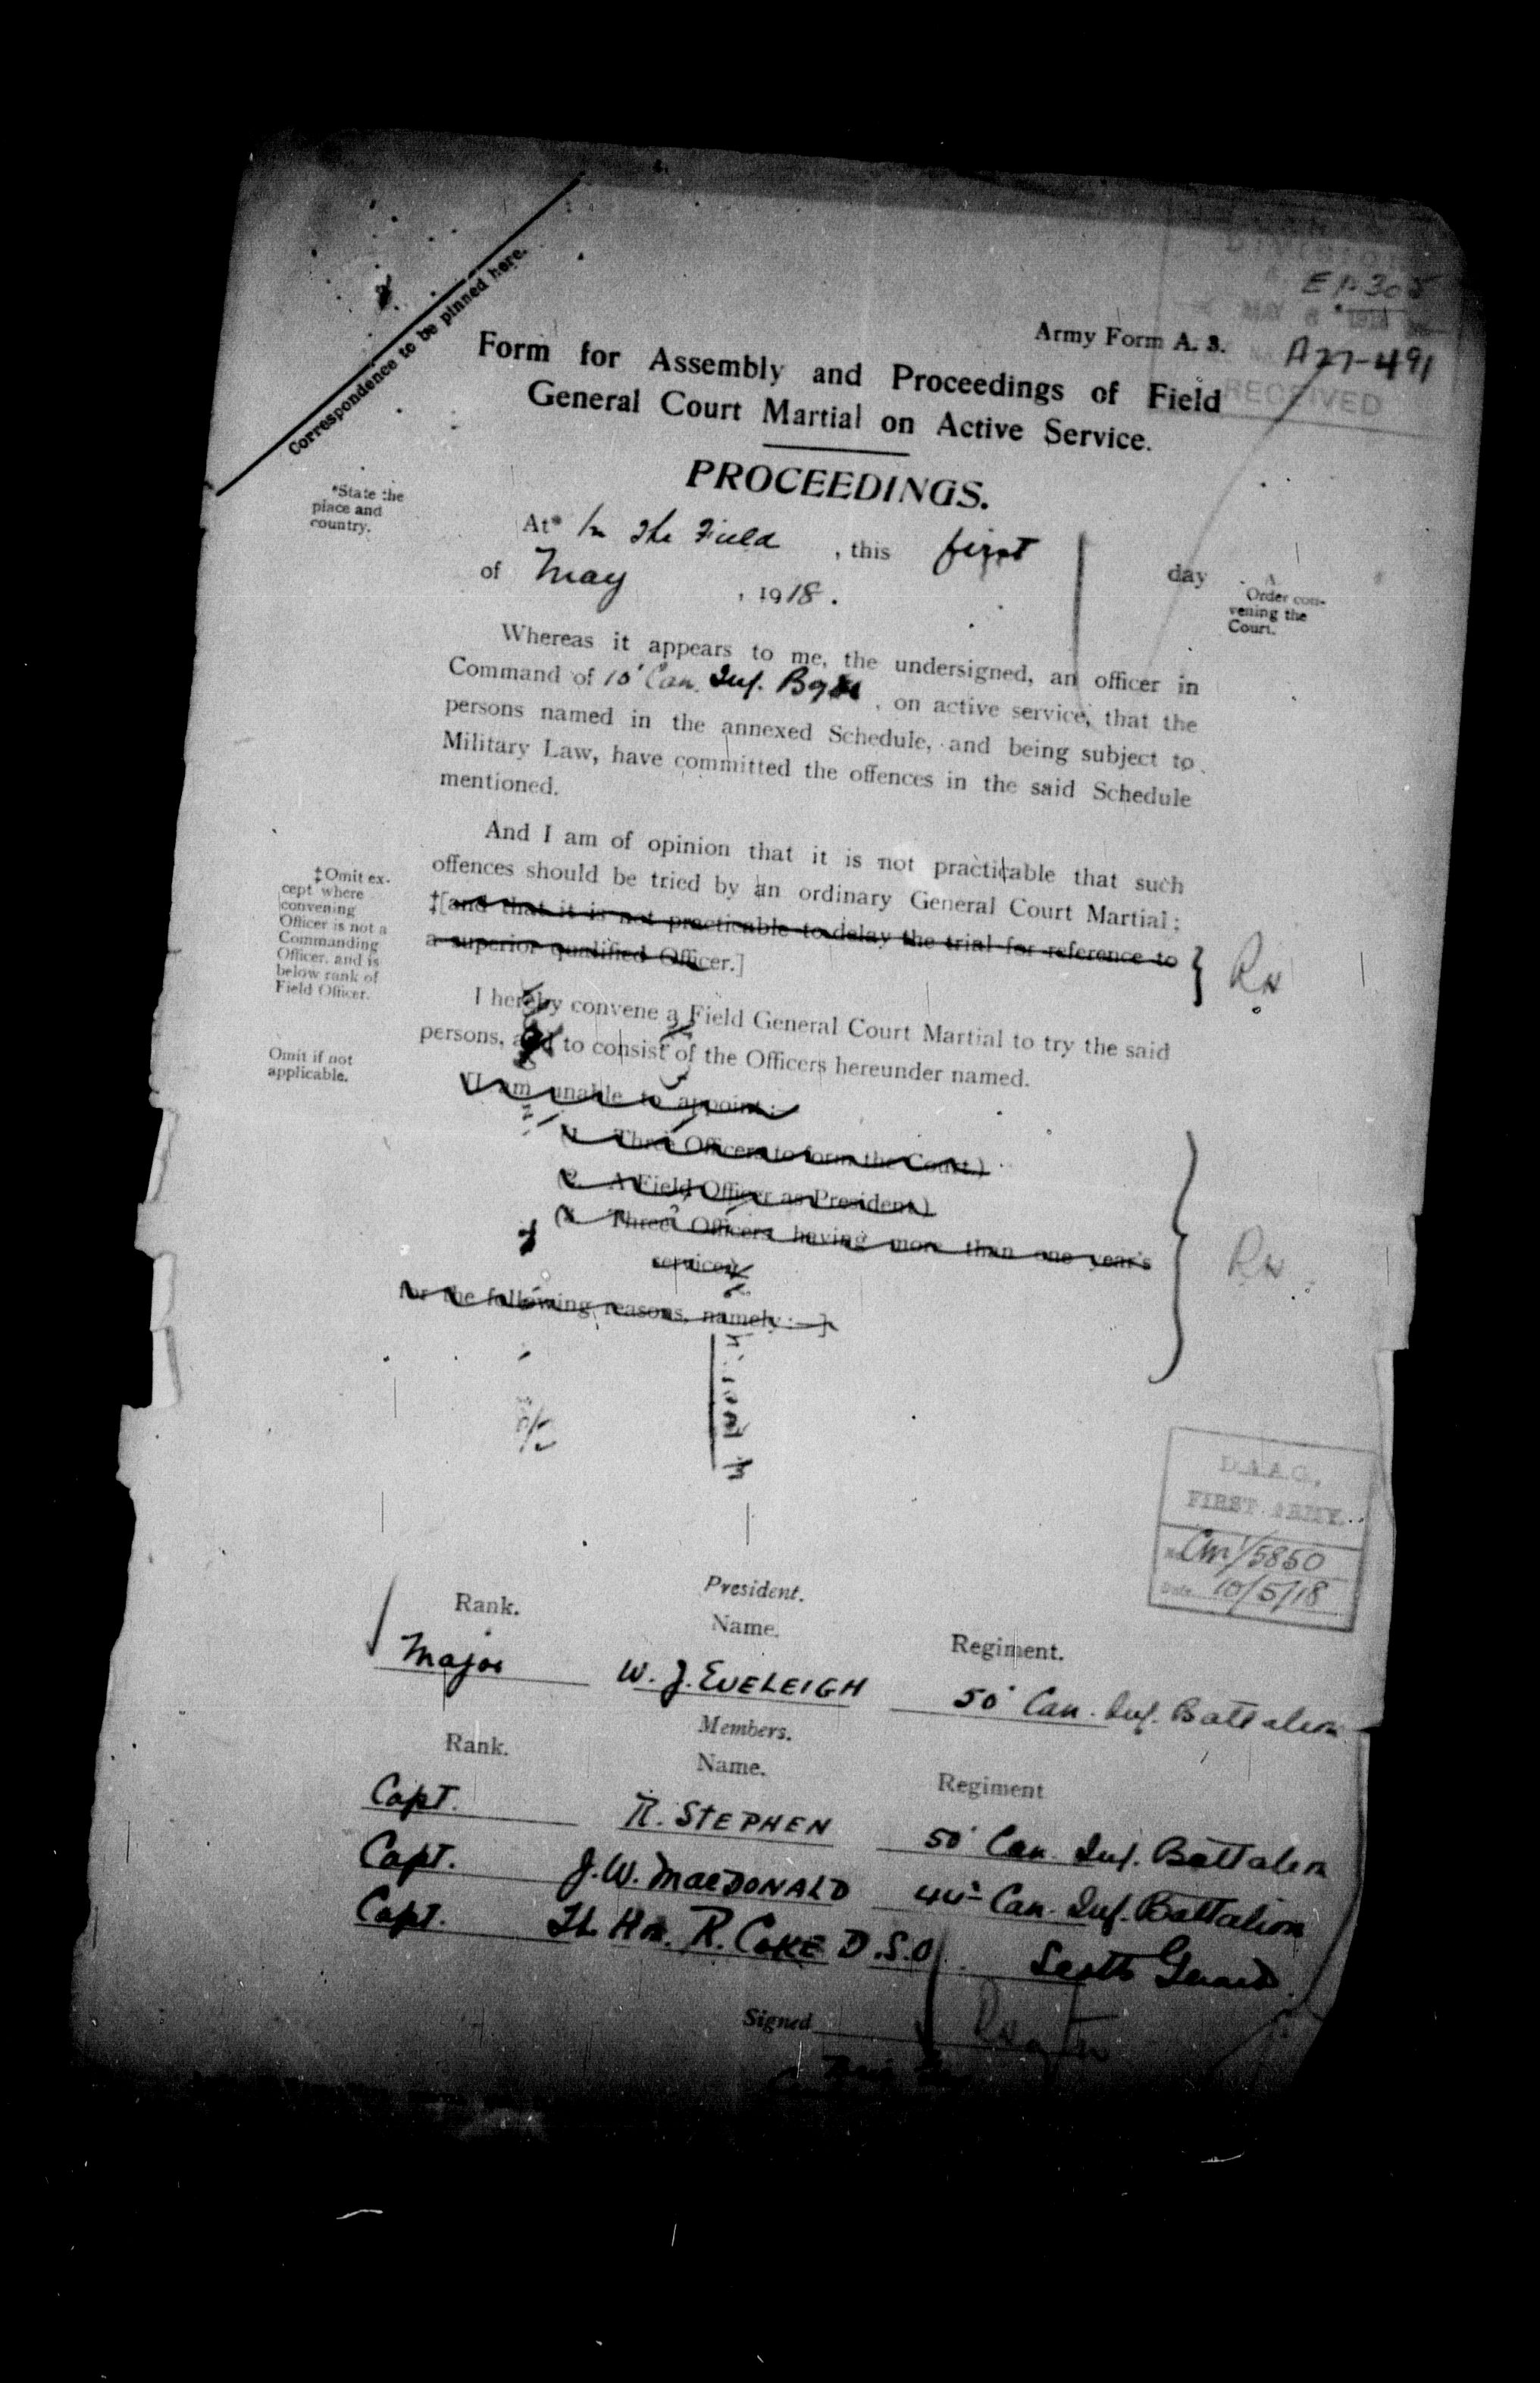 Correspondence to be pinned here.
DIVISION
MAY 6 1918
RECEIVED
A27-491
Army Form A. 3.
Form for Assembly and Proceedings of Field
General Court Martial on Active Service.
PROCEEDINGS.
*State the
place and
country.
At* In The Field , this first day
of May , 1918.
A
Order con-
vening the
Court.
Whereas it appears to me, the undersigned, an officer in
Command of 10' Can. Inf. Bgde , on active service, that the
persons named in the annexed Schedule, and being subject to
Military Law, have committed the offences in the said Schedule
mentioned.
And I am of opinion that it is not practicable that such
offences should be tried by an ordinary General Court Martial;
‡[and that it is not practicable to delay the trial for reference to
a superior qualified Officer.]
‡Omit ex-
cept where
convening
Officer is not a
Commanding
Officer, and is
below rank of
Field Officer.
I hereby convene a Field General Court Martial to try the said
persons, and to consist of the Officers hereunder named.
Omit if not
applicable.
[I am unable to appoint:—
(1. Three Officers to form the Court.)
(2. A Field Officer as President)
(3. Three Officers having more than one year's
service)
for the following reasons, namely:—]
D.A.A.G.,
FIRST ARMY.
No. Cm/5850
Date 10/5/18
President.
Rank. Name. Regiment.
Major W. J. EVELEIGH 50' Can. Inf. Battalion
Members.
Rank. Name. Regiment
Capt. R. STEPHEN 50' Can. Inf. Battalion
Capt. J.W. MacDONALD 44' Can. Inf. Battalion
Capt. Th Hon. R. COKE D.S.O. Scots Guards
Signed